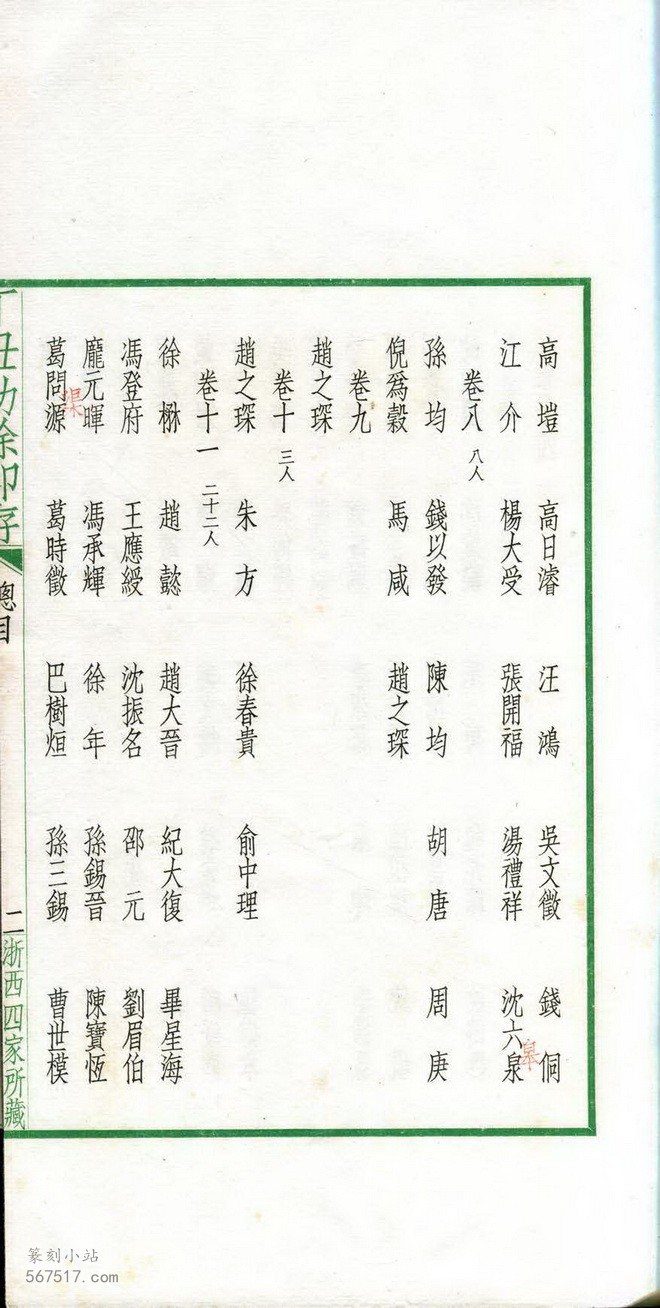 高塏 高日濬 汪鴻 吳文徵 錢侗
江介 楊大受 張開福 湯禮祥 沈六泉
皋
卷八 八人
孫均 錢以發 陳均 胡唐 周庚
倪爲穀 馬咸 趙之琛
卷九
趙之琛
卷十 三人
趙之琛 朱方 徐春貴 俞中理
卷十一 二十二人
徐楙 趙懿 趙大晉 紀大復 畢星海
馮登府 王應綬 沈振名 邵元 劉眉伯
龐元暉 馮承輝 徐年 孫錫晉 陳寶恆
渠
葛問源 葛時徵 巴樹烜 孫三錫 曹世模
丁丑劫餘印存 總目 二 浙西四家所藏
篆刻小站
567517.com